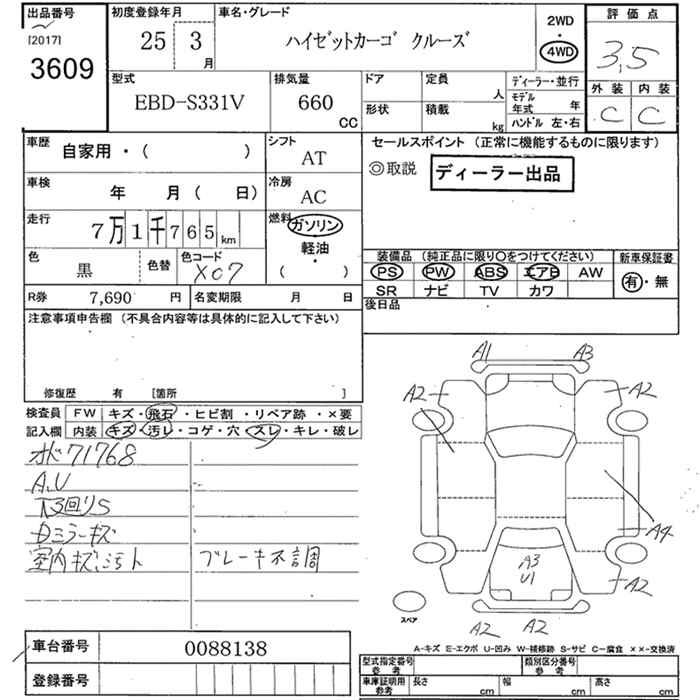 出品番号
[2017]
3609
初度登録年月
25 3 月
車名・グレード
ハイゼットカーゴ クルーズ
2WD
・
4WD
評価点
3.5
外装 内装
C C
型式
EBD-S331V
排気量
660 CC
ドア
定員 人
形状
積載 kg
ディーラー・並行
モデル年式 年
ハンドル 左・右
車歴
自家用・( )
シフト
AT
車検
年 月( 日)
冷房
AC
走行
7万1千765km
燃料
ガソリン
・
軽油
・
( )
色
黒
色替
色コード
X07
R券 7,690 円
名変期限 月 日
セールスポイント (正常に機能するものに限ります)
◎取説 ディーラー出品
装備品 (純正品に限り○をつけてください)
PS PW ABS エアB AW
SR ナビ TV カワ
新車保証書
有・無
後日品
注意事項申告欄 (不具合内容等は具体的に記入して下さい)
修復歴 有 [箇所 ]
検査員記入欄
FW キズ・飛石・ヒビ割・リペア跡・×要
内装 キズ・汚レ・コゲ・穴・スレ・キレ・破レ
オド71768
A,U
下回りS
Dミラーキズ
室内キズ汚ト
ブレーキ不調
A1 A3
A2 A2
A4
A3
U1
A2
A2 A2
スペア
A-キズ E-エクボ U-凹み W-補修跡 S-サビ C-腐食 ××-交換済
車台番号 0088138
登録番号
型式指定番号 参考
類別区分番号 参考
車庫証明用 参考
長さ cm
幅 cm
高さ cm